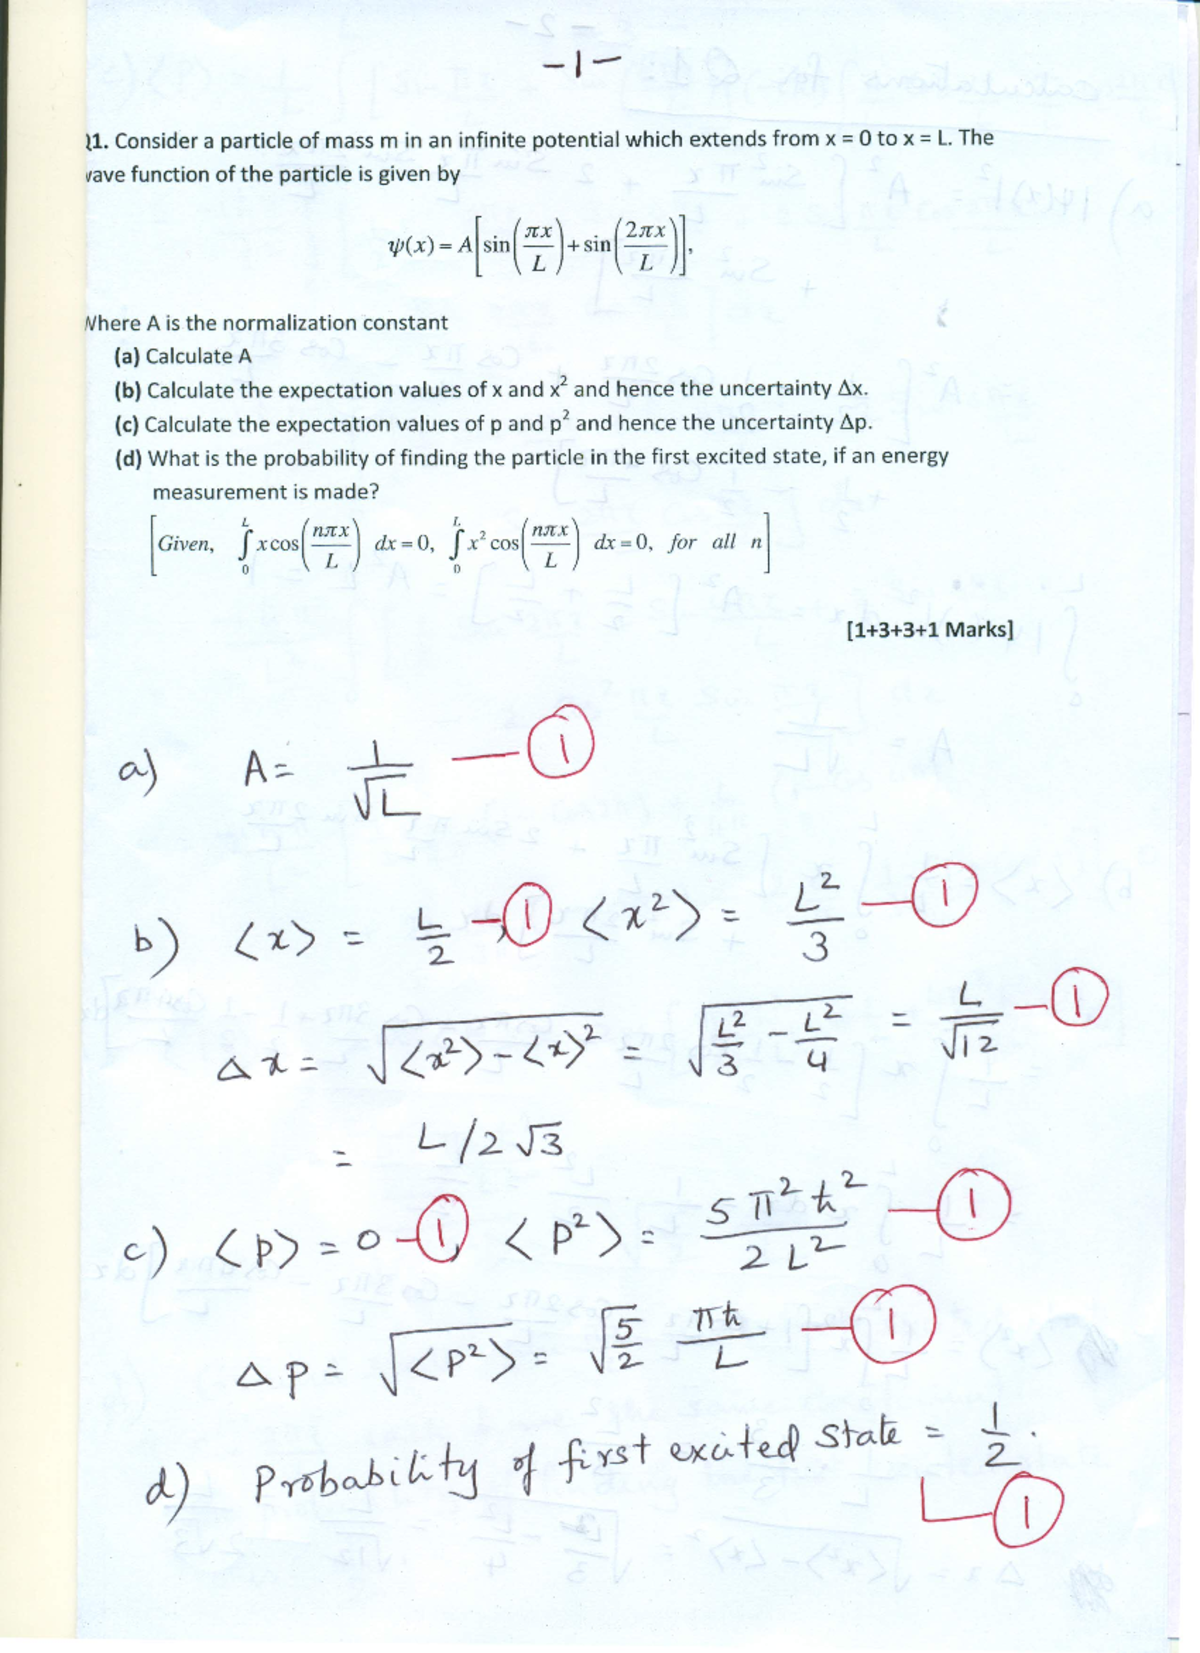 -1-
21. Consider a particle of mass m in an infinite potential which extends from x = 0 to x = L. The
wave function of the particle is given by
ψ(x) = A[sin(πx/L) + sin(2πx/L)],
Where A is the normalization constant
(a) Calculate A
(b) Calculate the expectation values of x and x² and hence the uncertainty Δx.
(c) Calculate the expectation values of p and p² and hence the uncertainty Δp.
(d) What is the probability of finding the particle in the first excited state, if an energy
measurement is made?
[Given, ∫₀ᴸ x cos(nπx/L) dx = 0, ∫₀ᴸ x² cos(nπx/L) dx = 0, for all n]
[1+3+3+1 Marks]
a) A = 1/√L —①
b) <x> = L/2 —①, <x²> = L²/3 —①
Δx = √(<x²> - <x>²) = √(L²/3 - L²/4) = L/√12 —①
= L/2√3
c) <p> = 0 —①, <p²> = 5π²ħ²/2L² —①
Δp = √<p²> = √(5/2) πħ/L —①
d) Probability of first excited state = 1/2.
—①